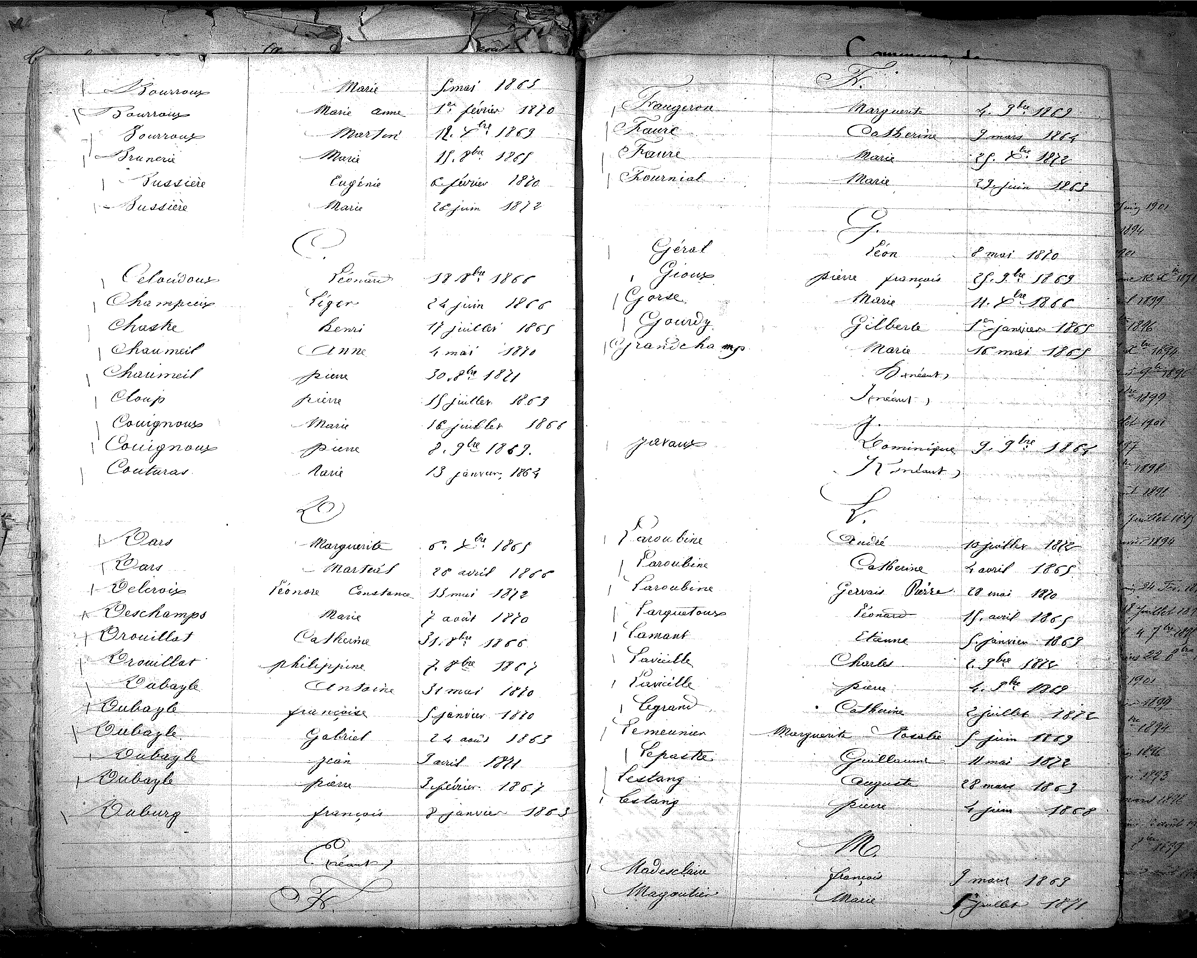 Bourroux Marie 5 mai 1865
Bourroux Marie anne 1er février 1870
Bourroux Martin 12. Xbre 1869
Brunerie Marie 15. 8bre 1865
Bussière Eugénie 6 février 1870
Bussière Marie 26 juin 1872
C.
Celaudoux Léonard 18 8bre 1866
Champeix Léger 24 juin 1866
Chaske henri 17 juillet 1865
Chaumeil Anne 4 mai 1870
Chaumeil pierre 30. 8bre 1871
Cloup pierre 15 juillet 1869
Couignoux Marie 16 juillet 1866
Couignoux pierre 2. 9bre 1869.
Couturas Marie 13 janvier, 1864
D
Dars Marguerite 6. Xbre 1865
Dars Martial 28 avril 1866
Delcroix Léonore Constance 15 mai 1872
Deschamps Marie 7 août 1870
Drouillat Catherine 31. 8bre 1866
Drouillat philippine 7. 8bre 1867
Dubayle Antoine 31 mai 1870
Dubayle françoise 5 janvier 1870
Dubayle Gabriel 24 août 1863
Dubayle jean 9 avril 1871
Dubayle pierre 3 février 1867
Duburg françois 8 janvier 1863
E (néant)
F.
F.
Faugeron Marguerite 4. 9bre 1869
Faure Catherine 9 mars 1864
Faure Marie 25. Xbre 1872
Fournial Marie 29 juin 1863
G.
Géral Léon 8 mai 1870
Gioux pierre françois 25. 9bre 1869
Gorse Marie 11. Xbre 1866
Gourdy Gilberte 1er janvier 1865
Grandchamp Marie 16 mai 1865
H (néant)
I (néant)
J.
javaux Dominique 9. 9bre 1864
K (néant)
L.
Laroubine André 10 juillet 1872
Laroubine Catherine 4 avril 1865
Laroubine Gervais Pierre 28 mai 1870
Larquetoux Léonard 15. avril 1865
Lamant Etienne 5 janvier 1863
Laveille Charles 2. 9bre 1872
Laveille pierre 4. 9bre 1868
Legrand Catherine 2 juillet 1872
Lemeunier Marguerite Rosalie 5 juin 1869
Lepastre Guillaume 11 mai 1872
Lestang Auguste 28 mars 1863
Lestang pierre 4 juin 1868
M.
Madesclaire françois 9 mars 1869
Magoutier Marie 5 juillet 1871